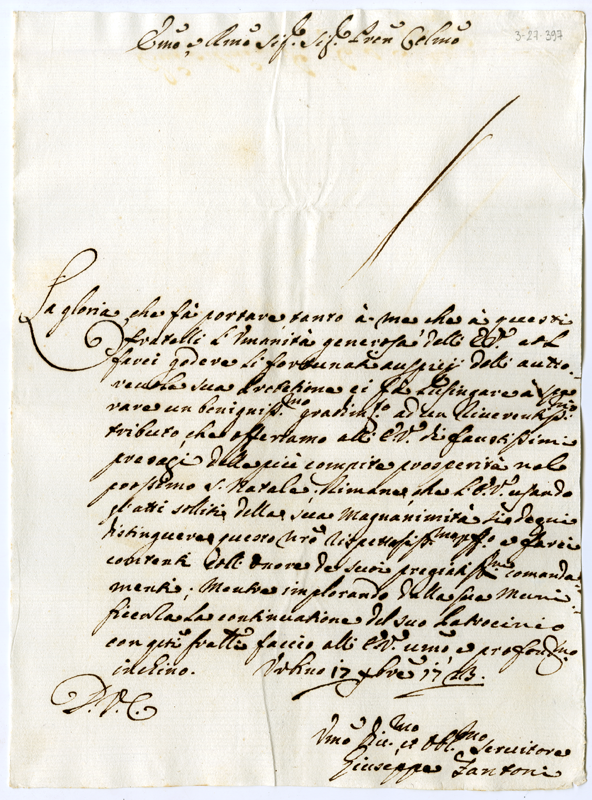 Emo, e Rmo Sigr. Sigr. Pron Colmo
3-27-397
La gloria, che fà portare tanto à me che à questi
fratelli l'Umanità generosa dell' E.V. col
farci godere li fortunati auspicj dell' autto-
revole sua Protezione ci fà lusingare à spe-
rare un benigniss.mo gradim.to ad un Riverentiss.mo
tributo che offeriamo all' E.V. di faustissimi
presagi delle più compite prosperità nel
prossimo S. Natale; Rimane, che l'E.V. usando
gl'atti soliti della sua Magnanimità si degni
distinguere questo nro rispettosiss.mo e farci
contenti coll' onore de suoi pregiatiss.mi comanda-
menti; Mentre implorando dalla sua Muni-
ficenza la continuatione del suo Patrocinio
con qsti fratelli faccio all' E.V. umo e profondmo
inchino. Urbino 17 Xbre 17
D. V. E.
Umo Div.mo et Obl.mo Servitore
Giuseppe Zantoni